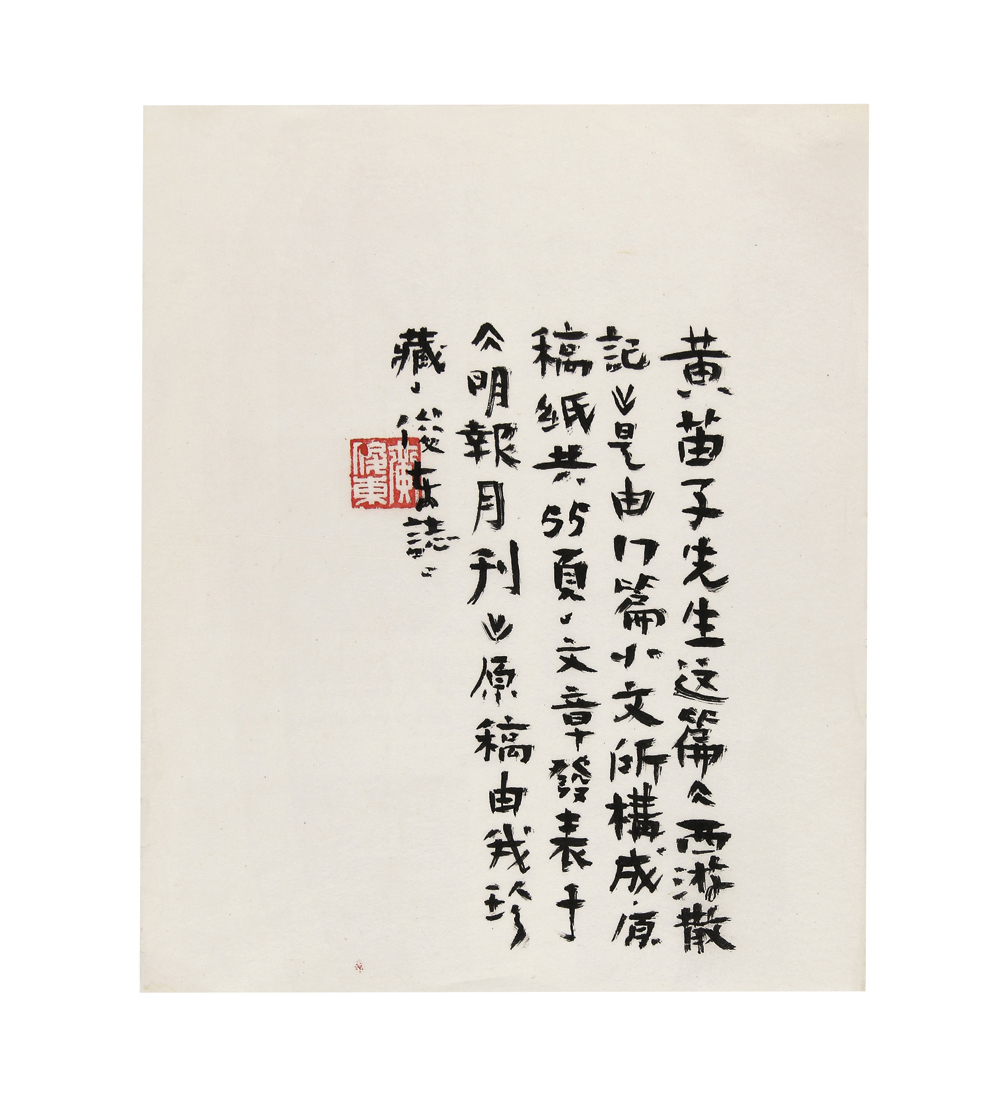 黄苗子先生这篇《西游散
記》是由17篇小文所構成，原
稿紙共55頁，文章發表于
《明報月刊》原稿由我珍
藏，俊东誌。
黃俊東